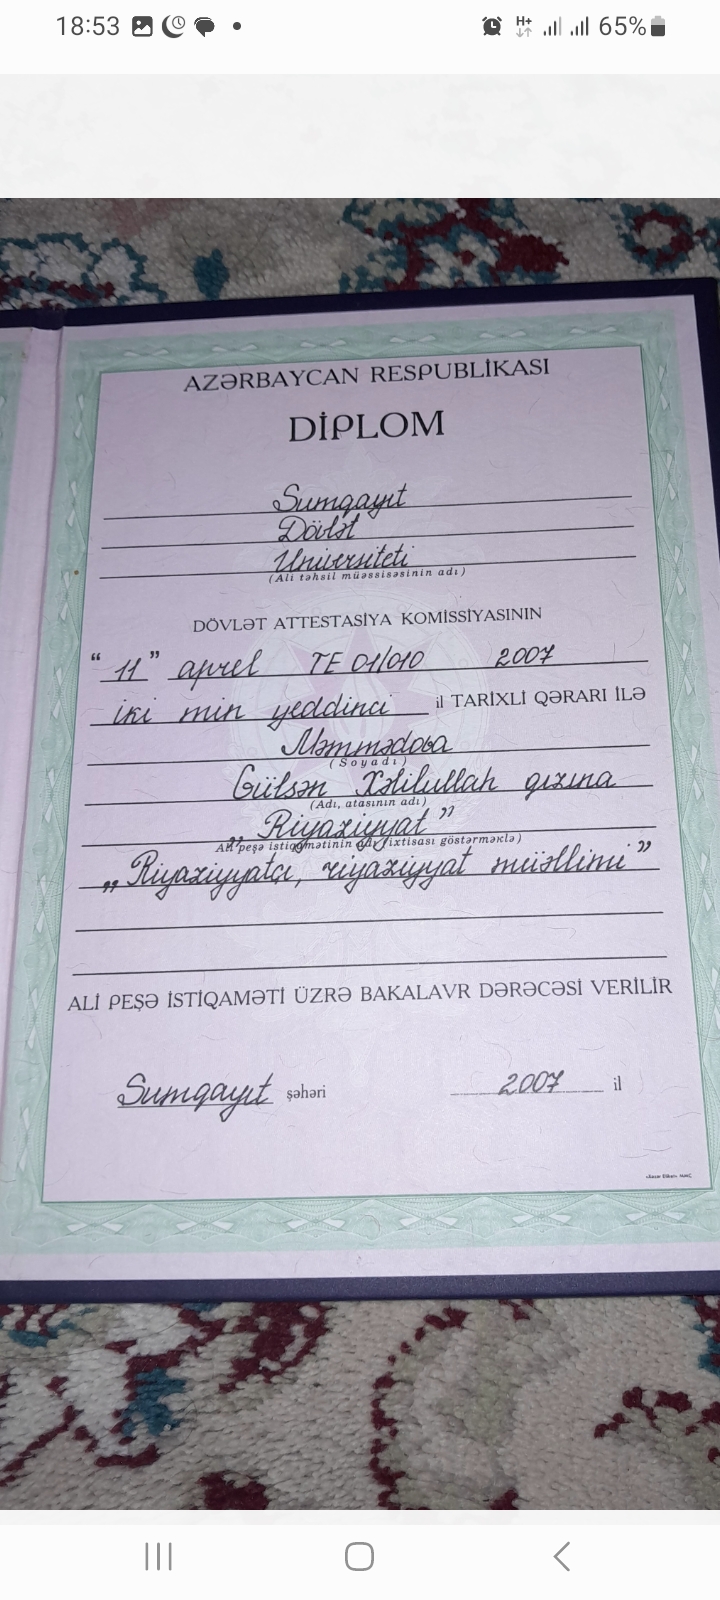 18:53
H+
65%
AZƏRBAYCAN RESPUBLİKASI
DİPLOM
Sumqayıt
Dövlət
Universiteti
(Ali təhsil müəssisəsinin adı)
DÖVLƏT ATTESTASİYA KOMİSSİYASININ
“ 11 ” aprel TE 01/010 2007
iki min yeddinci il TARİXLİ QƏRARI İLƏ
Məmmədova
(Soyadı)
Gülşən Xəlilullah qızına
(Adı, atasının adı)
„Riyaziyyat”
Ali peşə istiqamətinin adı ixtisası göstərməklə)
„Riyaziyyatçı, riyaziyyat müəllimi”
ALİ PEŞƏ İSTİQAMƏTİ ÜZRƏ BAKALAVR DƏRƏCƏSİ VERİLİR
Sumqayıt şəhəri 2007 il